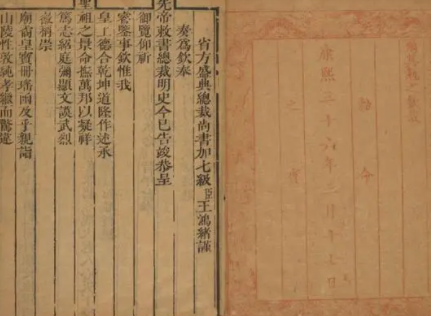 康熙三十六年 月十 日
敕命
之寶
省方盛典總裁尚書加七級臣王鴻緒謹
奏為欽奉
先帝敕書總裁明史今已告竣恭呈
御覽仰祈
睿鑒事欽惟我
皇上德合乾坤道隆作述承
聖祖之景命撫萬邦以凝祥
篤志紹庭彌顯文謨武烈
崇
廟裔皇寶冊瑤函及乎親詣
山陵性敦純孝